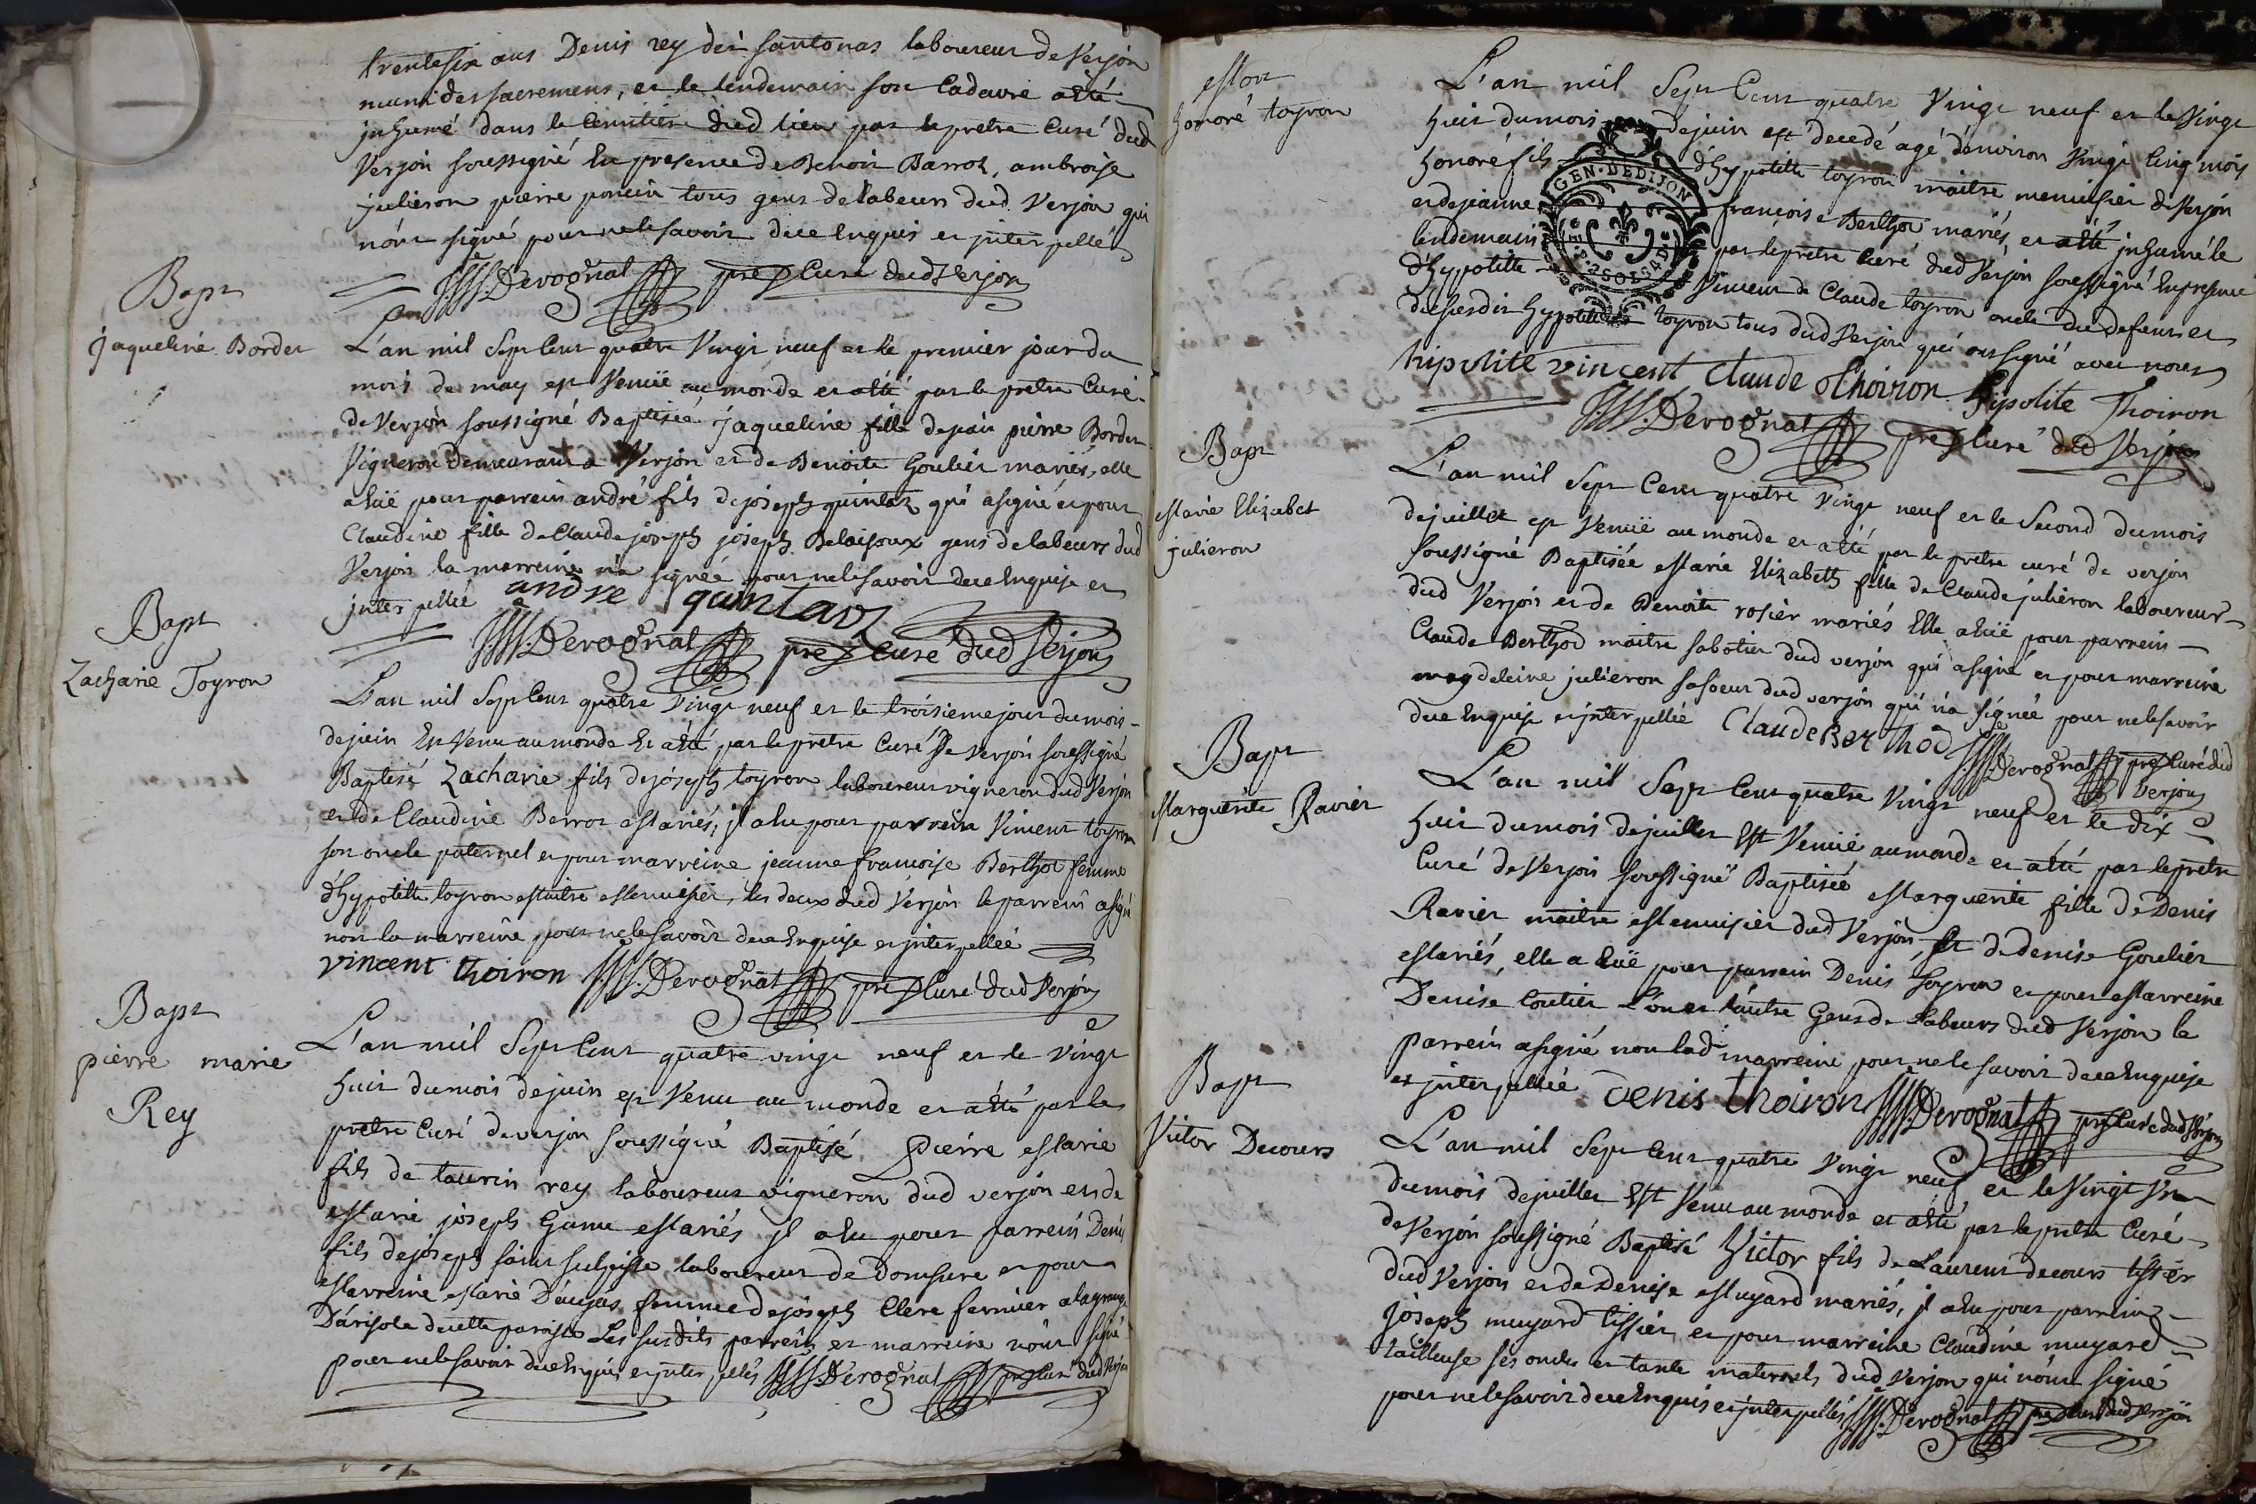 trentesix ans Denis rey dei santonas laboureur de Verjon
muni des sacremens, et le lendemain son Cadavre a eté
jnhumé dans le Cimitiere dud lieu par le pretre Curé dud
Verjon soussigné En presence de Benoit Barrot, ambroise
julieron pierre poncin tous gens de labeurs dud Verjon qui
n'ont signé pour ne le savoir de ce Enquis et jnterpellés
Derognat pre Curé dud Verjon
Bapt
jaqueline Bordet
L'an mil Sept Cent quatre Vingt neuf et le premier jour du
mois de may est Venuë au monde et a eté par le pretre Curé
de Verjon soussigné Baptisée jaqueline fille de jean pierre Bordet
Vigneron demeurant a Verjon et de Benoite Goulier mariés, elle
a Euë pour parrein andré fils de joseph quintaz qui a signé et pour
Claudine fille de Claude joseph joseph Belaisoux gens de labeurs dud
Verjon la marreine n'a signée pour ne le savoir de ce Enquise et
jnterpellée andre quintaz
Derognat pre Curé dud Verjon
Bapt
Zacharie Toyron
L'an mil Sept Cent quatre Vingt neuf et le troisieme jour du mois
de juin Est Venu au monde Et a eté par le pretre Curé de Verjon soussigné
Baptisé Zacharie fils de joseph toyron laboureur vigneron dud Verjon
et de Claudine Berrot Mariés, jl a Eu pour parrein Vincent toyron
son oncle paternel et pour marreine jeanne francoise Berthot femme
d'hypolitte toyron Maitre Menuisier, les deux dud Verjon le parrein a signé
non la marreine pour ne le savoir de ce Enquise et jnterpellée
vincent thoiron Derognat pre Curé dud Verjon
Bapt
pierre marie
Rey
L'an mil Sept Cent quatre vingt neuf et le vingt
huit du mois de juin est Venu au monde et a eté par le
pretre Curé de verjon soussigné Baptisé Pierre Marie
fils de taurin rey laboureur vigneron dud verjon et de
Marie joseph Ganu Mariés jl a Eu pour parrein Denis
fils de joseph saint sulpisse laboureur de Domsure et pour
Marreine Marie Daujas femme de joseph Clerc fermier a la grange
D'arisole de cette paroisse Les susdits parrein et marreine n'ont signé
pour ne le savoir de ce Enquis et jnterpellés Derognat pre Curé dud Verjon
Mort
honoré toyron
L'an mil Sept Cent quatre Vingt neuf et le Vingt
huit du mois de juin est decedé agé d'environ Vingt Cinq mois
honoré fils d'hypolitte toyron maitre menuisier de Verjon
et de jeanne françoise Berthot mariés, et a eté jnhumé le
lendemain par le pretre Curé dud Verjon soussigné En presence
d'hypolitte Vincent de Claude toyron oncle du defunt et
dususdit hypolitte toyron tous dud Verjon qui ont signé avec nous
GEN. DE DIJON
hipolite vincent Claude thoiron hipolite Thoiron
Derognat pre Curé dud Verjon
Bapt
Marie Elizabet
julieron
L'an mil Sept Cent quatre Vingt neuf et le Second du mois
de juillet est Venuë au monde et a eté par le pretre curé de verjon
soussigné Baptisée Marie Elizabeth fille de Claude julieron laboureur
dud Verjon et de Benoite rosier mariés Elle a Euë pour parrein
Claude Berthod maitre sabotier dud verjon qui a signé et pour marreine
magdeleine julieron sa soeur dud verjon qui n'a signée pour ne le savoir
de ce Enquise et jnterpellée Claude Berthod Derognat pre Curé dud
Verjon
Bapt
Marguerite Ravier
L'an mil Sept Cent quatre Vingt neuf et le dix
huit du mois de juillet Est Venuë au monde et a eté par le pretre
Curé de Verjon soussigné Baptisée Marguerite fille de Denis
Ravier maitre Menuisier dud Verjon, Et de denise Goulier
Mariés, elle a Euë pour parrein Denis toyron et pour Marreine
Denise Coutier L'un et L'autre Gens de labeurs dud Verjon le
parrein a signé non lad marreine pour ne le savoir de ce Enquise
et jnterpellée Denis thoiron Derognat pre Curé dud Verjon
Bapt
Victor Decours
L'an mil Sept Cent quatre Vingt neuf et le Vingt Un
du mois de juillet Est Venu au monde et a eté par le pretre Curé
de Verjon soussigné Baptisé Victor fils de Laurent decours tissier
dud Verjon et de Denise Muyard mariés, jl a Eu pour parrein
joseph muyard tissier et pour marreine Claudine muyard
tailleuse ses oncle et tante maternels dud Verjon qui n'ont signé
pour ne le savoir de ce Enquis et jnterpellés Derognat pre Curé dud Verjon